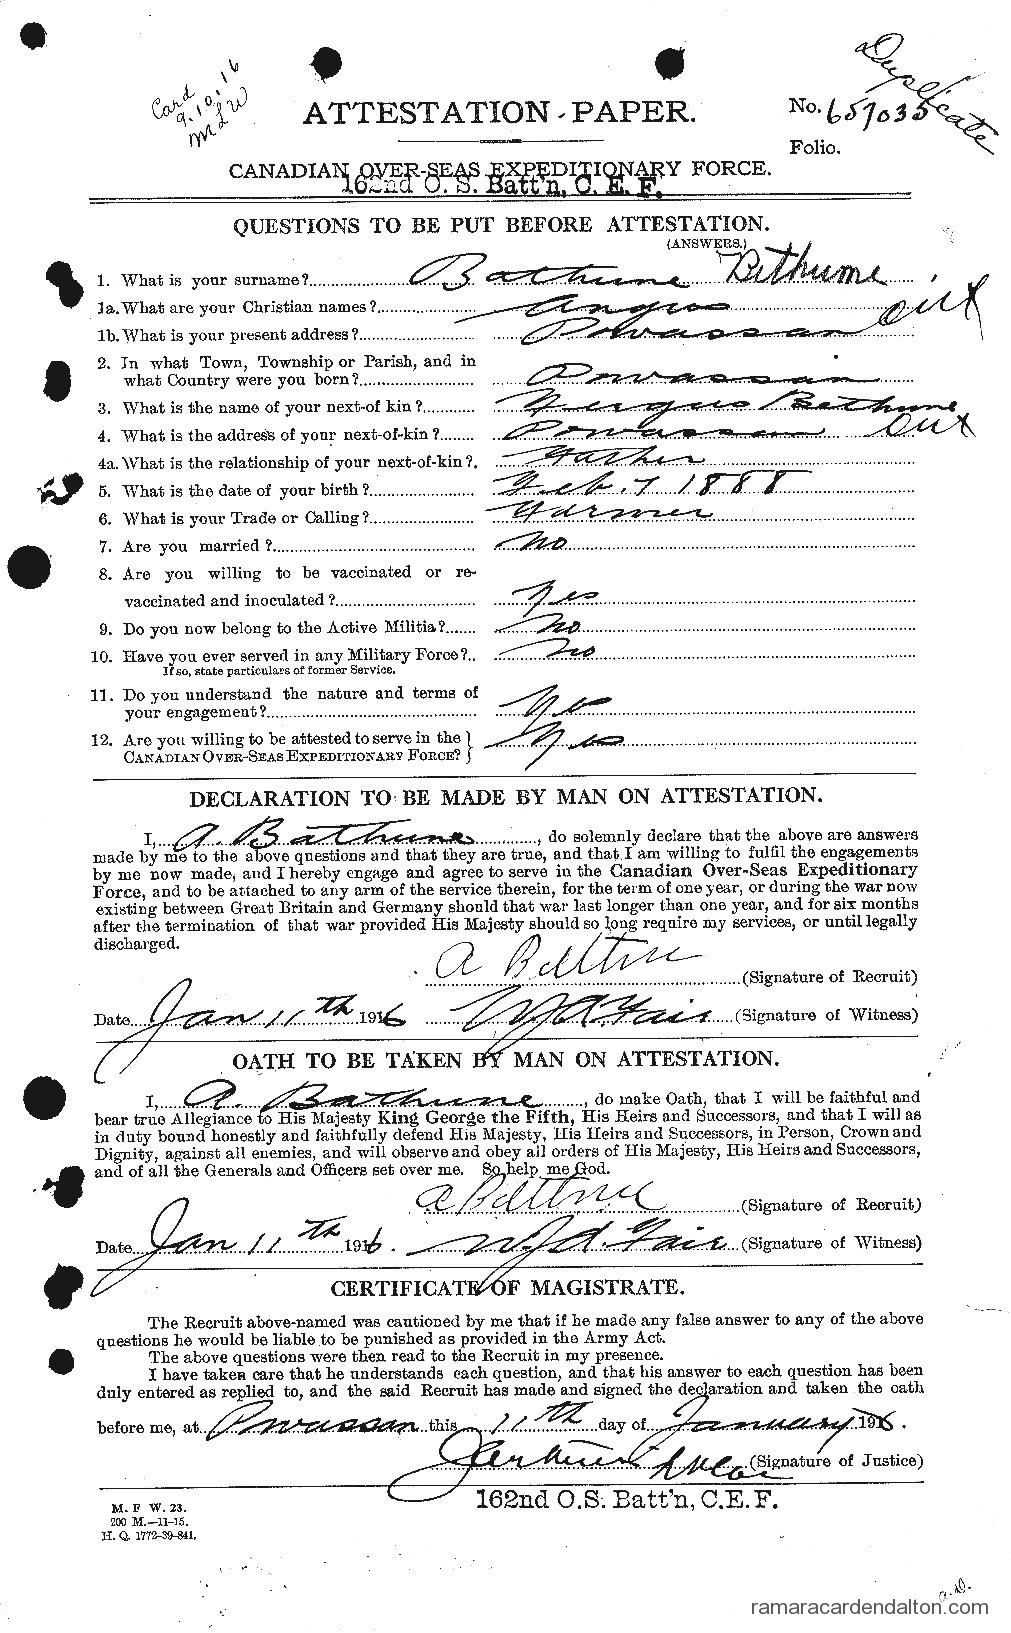 Card
9.10.16
MLW
Duplicate
ATTESTATION PAPER.
No. 657035
Folio.
CANADIAN OVER-SEAS EXPEDITIONARY FORCE.
162nd O. S. Batt'n, C. E. F.
QUESTIONS TO BE PUT BEFORE ATTESTATION.
(ANSWERS.)
1. What is your surname? Bathune Bethune
1a. What are your Christian names? Angus
1b. What is your present address? Powassan Ont
2. In what Town, Township or Parish, and in
what Country were you born? Powassan
3. What is the name of your next-of kin? Fergus Bethune
4. What is the address of your next-of-kin? Powassan Ont
4a. What is the relationship of your next-of-kin? Father
5. What is the date of your birth? Feb. 7 1888
6. What is your Trade or Calling? Farmer
7. Are you married? no
8. Are you willing to be vaccinated or re-
vaccinated and inoculated? yes
9. Do you now belong to the Active Militia? No
10. Have you ever served in any Military Force? No
If so, state particulars of former Service.
11. Do you understand the nature and terms of
your engagement? Yes
12. Are you willing to be attested to serve in the
CANADIAN OVER-SEAS EXPEDITIONARY FORCE? } Yes
DECLARATION TO BE MADE BY MAN ON ATTESTATION.
I, A. Bathune, do solemnly declare that the above are answers
made by me to the above questions and that they are true, and that I am willing to fulfil the engagements
by me now made, and I hereby engage and agree to serve in the Canadian Over-Seas Expeditionary
Force, and to be attached to any arm of the service therein, for the term of one year, or during the war now
existing between Great Britain and Germany should that war last longer than one year, and for six months
after the termination of that war provided His Majesty should so long require my services, or until legally
discharged.
A (Signature of Recruit)
Date Jan 11th 1916 W J A Fair (Signature of Witness)
OATH TO BE TAKEN BY MAN ON ATTESTATION.
I, A. Bathune, do make Oath, that I will be faithful and
bear true Allegiance to His Majesty King George the Fifth, His Heirs and Successors, and that I will as
in duty bound honestly and faithfully defend His Majesty, His Heirs and Successors, in Person, Crown and
Dignity, against all enemies, and will observe and obey all orders of His Majesty, His Heirs and Successors,
and of all the Generals and Officers set over me. So help me God.
A (Signature of Recruit)
Date Jan 11th 1916. W J A. Fair (Signature of Witness)
CERTIFICATE OF MAGISTRATE.
The Recruit above-named was cautioned by me that if he made any false answer to any of the above
questions he would be liable to be punished as provided in the Army Act.
The above questions were then read to the Recruit in my presence.
I have taken care that he understands each question, and that his answer to each question has been
duly entered as replied to, and the said Recruit has made and signed the declaration and taken the oath
before me, at Powassan this 11th day of January 1916.
(Signature of Justice)
162nd O.S. Batt'n, C.E.F.
M. F W. 23.
200 M.—11-15.
H. Q. 1772-39-841.
a.D.
ramaracardendalton.com